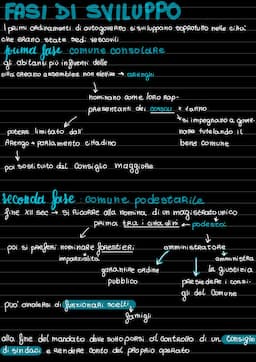 FASI DI SVILUPPO
I primi ordinamenti di autogoverno si sviluppano soprattutto nelle città
che erano state sedi vescovili
prima fase comune consolare
gli abitanti più influenti delle
città creano assemblee non elettive → arenghi
nominano come loro rap-
presentanti dei consoli → danno
si impegnano a gover-
nare tutelando il
bene comune
potere limitato dall'
Arengo = parlamento cittadino
poi sostituito dal Consiglio maggiore
seconda fase: comune podestarile
fine XII sec → si ricorre alla nomina di un magistrato unico
prima tra i cittadini ← podestà
poi si preferì nominare forestieri
imparzialità
amministratore
garantire ordine
pubblico
amministra
la giustizia
presiedere i consi-
gli del Comune
può avvalersi di funzionari scelti
famigli
alla fine del mandato deve sottoporsi al controllo di un Consiglio
di sindaci e rendere conto del proprio operato